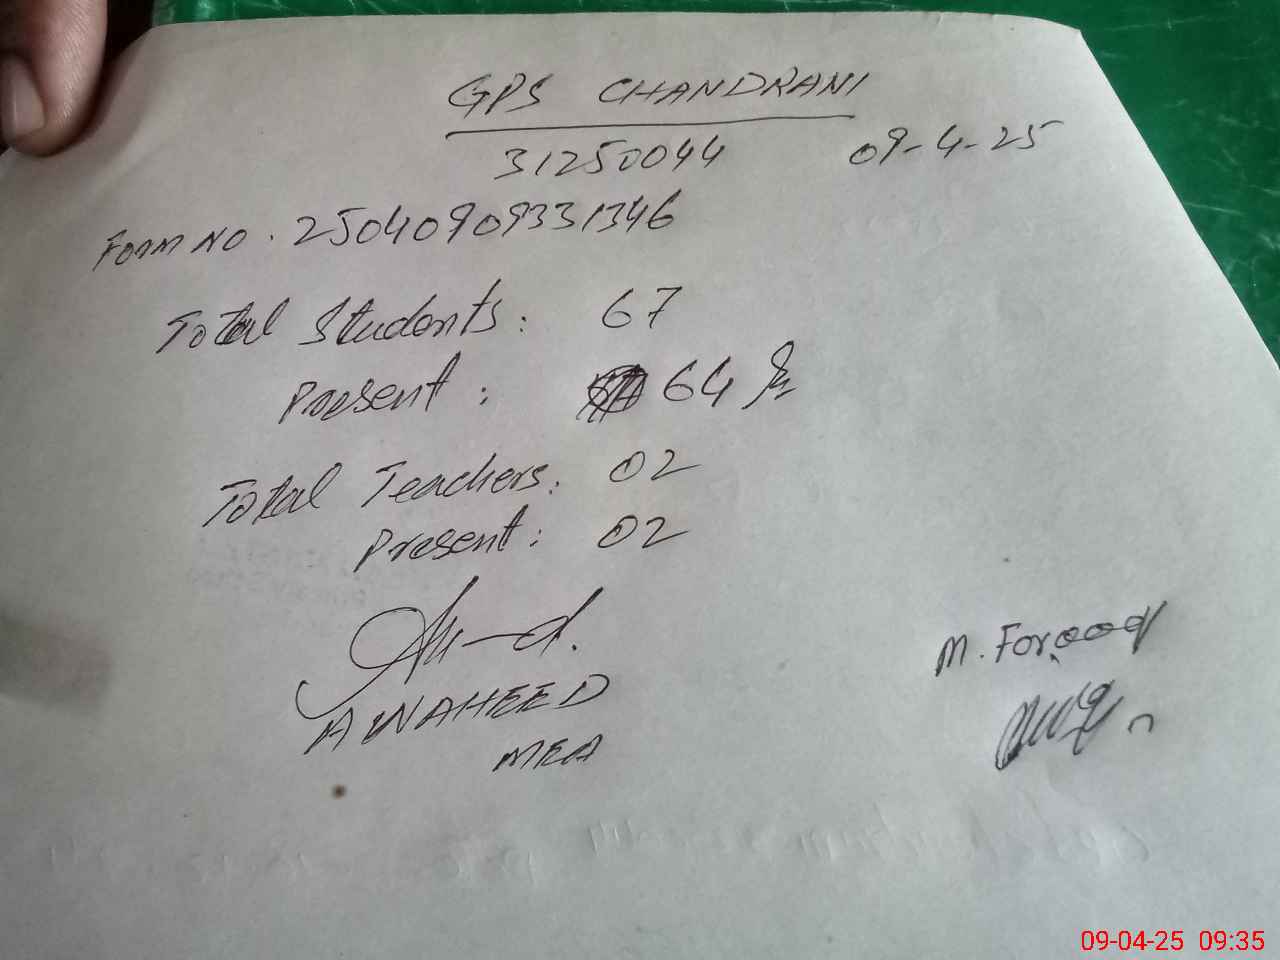 GPS CHANDRANI
31250044 09-4-25
Form NO. 25040909331346
Total Students: 67
Present: 64
Total Teachers: 02
Present: 02
AWAHEED
MEA
M. Farooq
09-04-25 09:35